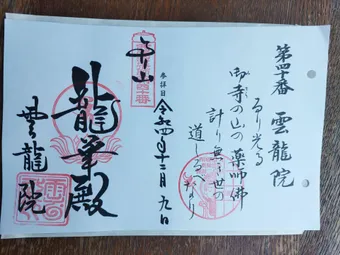 第四十番 雲龍院
るり光る
御寺の山の薬師佛
計り無き世の
道しるべなり
参拝日 令和四年十二月九日
四十番
るり山
龍華殿
雲龍院